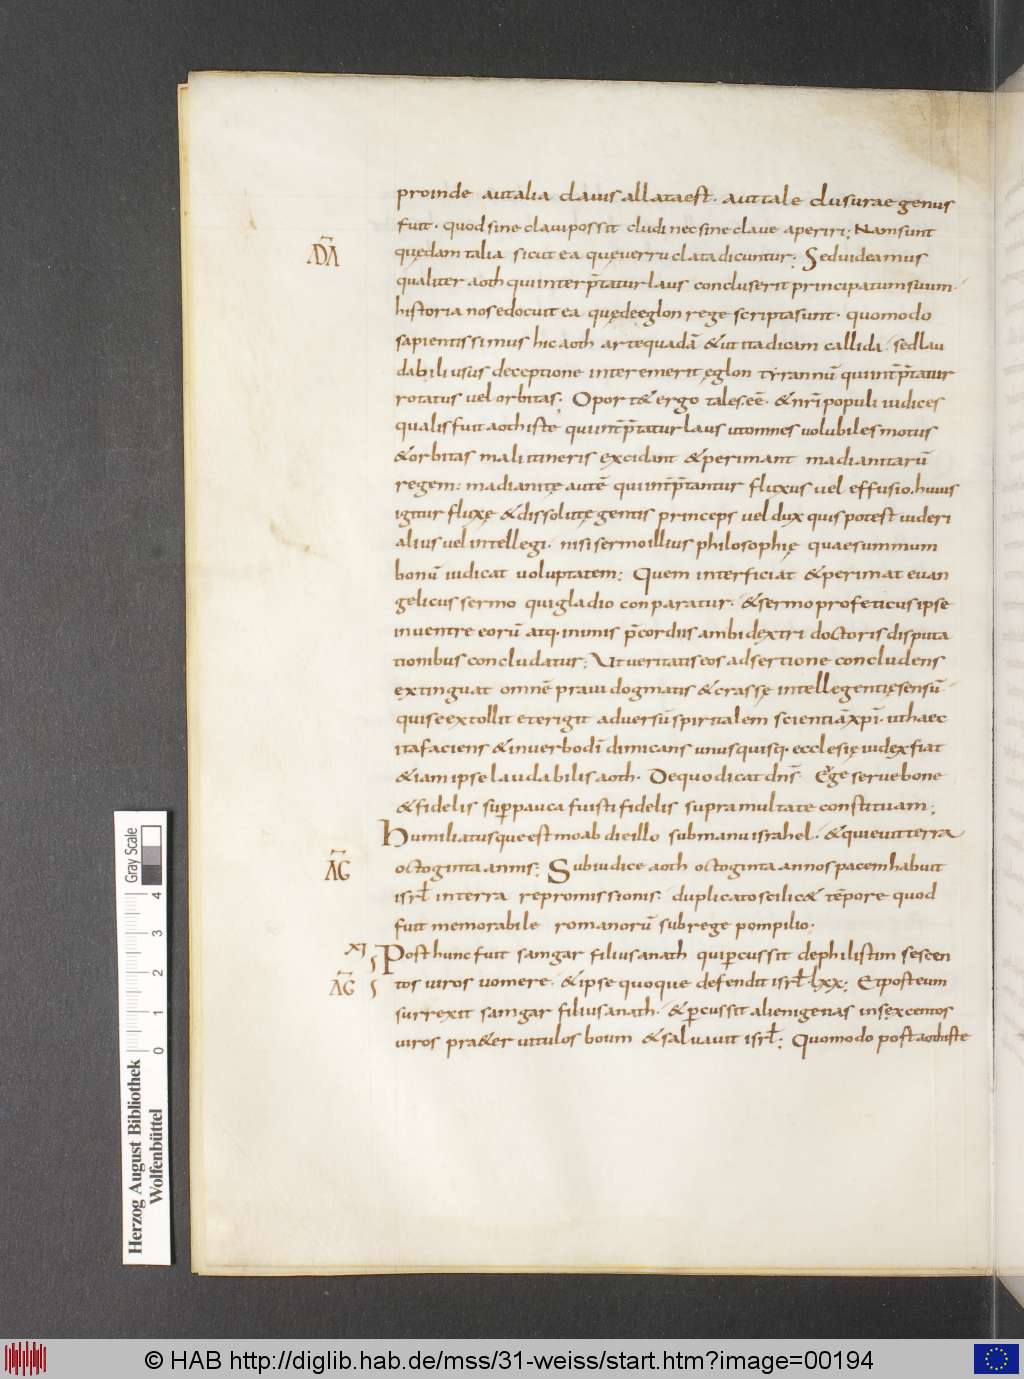 proinde aut alia clauis allata est. aut tale clusurae genus
fuit. quod sine claui possit cludi nec sine claue aperiri; Nam sunt
quędam talia sicut ea quę uerruclata dicuntur; Sed uideamus
qualiter aoth qui interp̄tatur laus concluserit principatum suum.
historia nos edocuit ea quę de eglon rege scripta sunt. quomodo
sapientissimus hic aoth arte quadā & ut ita dicam callida. sed lau
dabili usus deceptione interemerit ęglon tyrannū qui int̄p̄tatur
rotatus uel orbitas; Oport& ergo tales eē. & nr̄i populi iudices
qualis fuit aoth iste qui int̄p̄tatur laus ut omnes uolubiles motus
& orbitas mali itineris excidant & perimant madianitarū
regem: madianitę autē qui int̄p̄tantur fluxus uel effusio. huius
igitur fluxę & dissolutę gentis princeps uel dux quis potest uideri
alius uel intellegi. nisi sermo illius philosophię quae summum
bonū iudicat uoluptatem; Quem interficiat & perimat euan
gelicus sermo qui gladio conparatur. & sermo profeticus ipse
in uentre eorū atq. in imis p̄cordiis ambidextri doctoris disputa
tionibus concludatur; Ut ueritatis eos adsertione concludens
extinguat omnē praui dogmatis & crassę intellegentię sensū.
qui se extollit et erigit aduersū spiritalem scientiā xp̄i. ut haec
ita faciens & in uerbo dī dimicans unusquisq. ecclesię iudex fiat
& iam ipse laudabilis aoth. De quo dicat dn̄s. Ege serue bone
& fidelis sup̱ pauca fuisti fidelis supra multa te constituam;
Humiliatusque est moab die illo sub manu israhel. & quieuit terra
ĀG octoginta annis; Sub iudice aoth octoginta annos pacem habuit
isrł in terra repromissionis. duplicato scilic& tēpore quod
fuit memorabile romanorū sub rege pompilio;
XI Post hunc fuit samgar filius anath qui p̱cussit de philistim sescen
ĀG tos uiros uomere. & ipse quoque defendit isrł. lxx; Et post eum
surrexit samgar filius anath. & p̱cussit alienigenas in sexcentos
uiros pra&er uitulos boum & saluauit isrł; Quomodo post aoth iste
Herzog August Bibliothek
Wolfenbüttel
0 1 2 3 4
Gray Scale
© HAB http://diglib.hab.de/mss/31-weiss/start.htm?image=00194